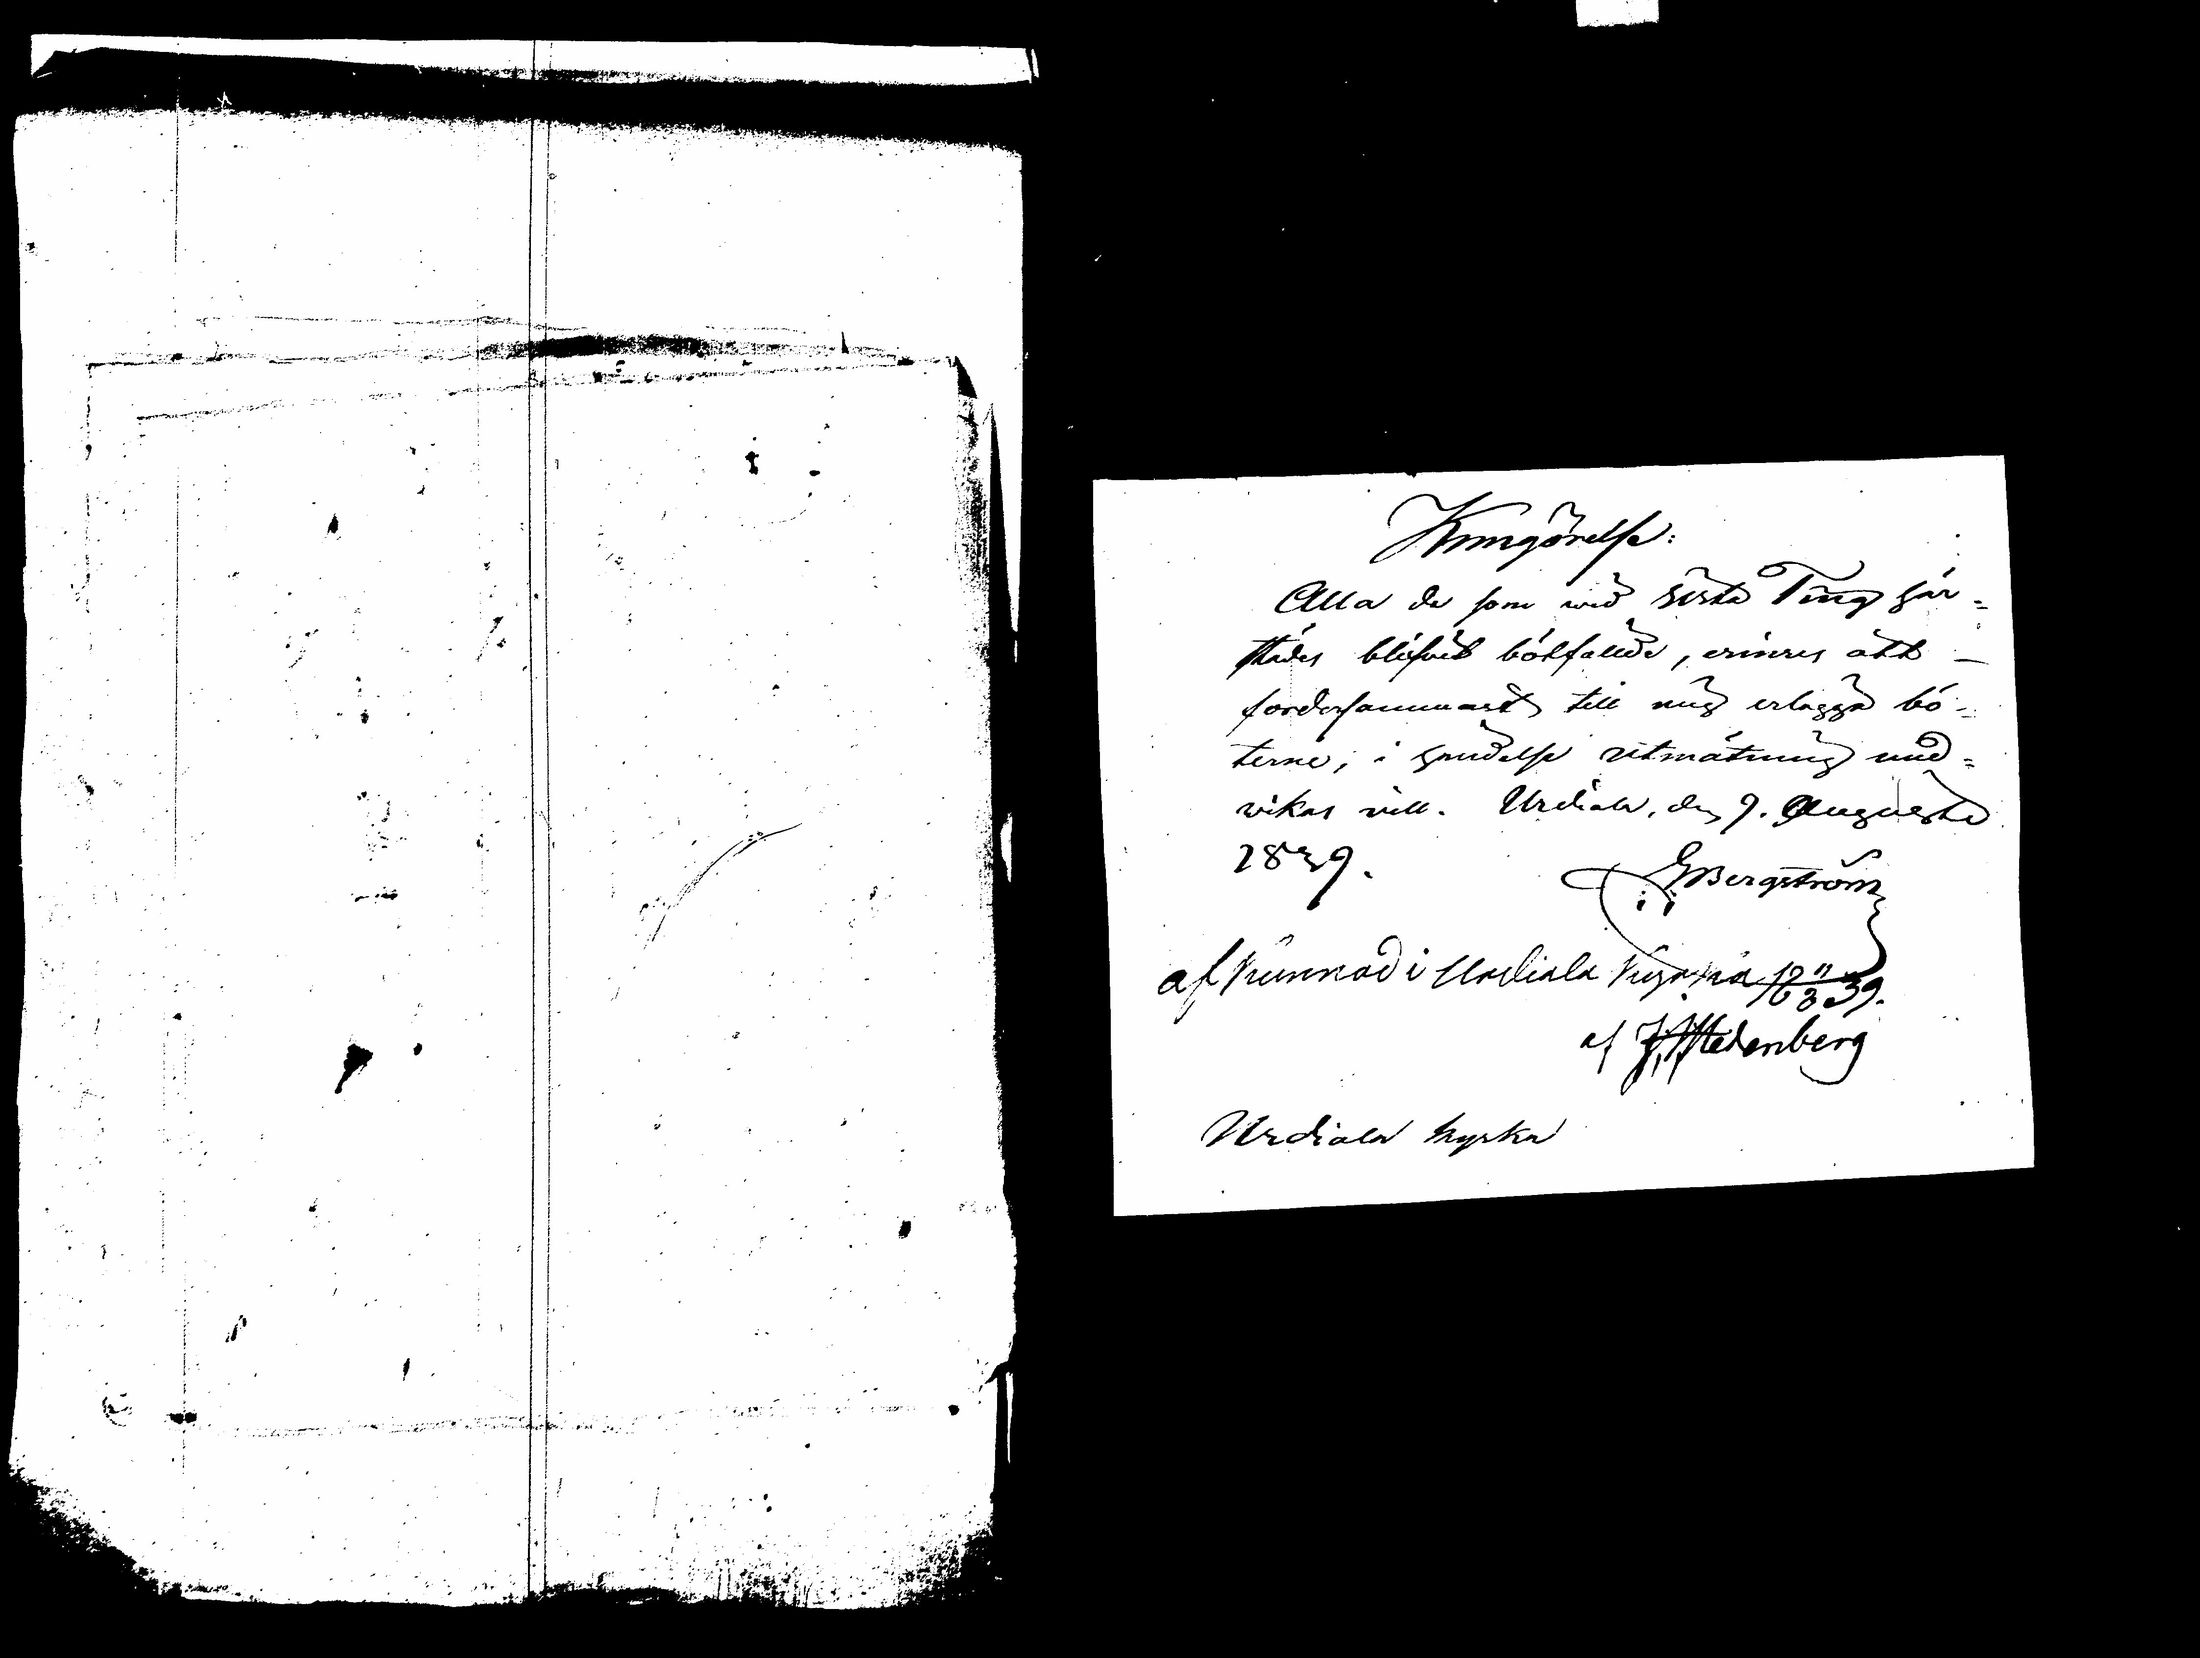 Kungörelse:
Alla de som wid sista Ting här-
städes blifvit bötfällde, erinras att
fordersammast till mig erlägga bö-
terne, i händelse utmätning und-
vikas vill. Urdiala, den 9. Augusti
1839.
GBergström
afkunnad i Urdiala kyrka 39.
af Stedenberg
Urdiala kyrka